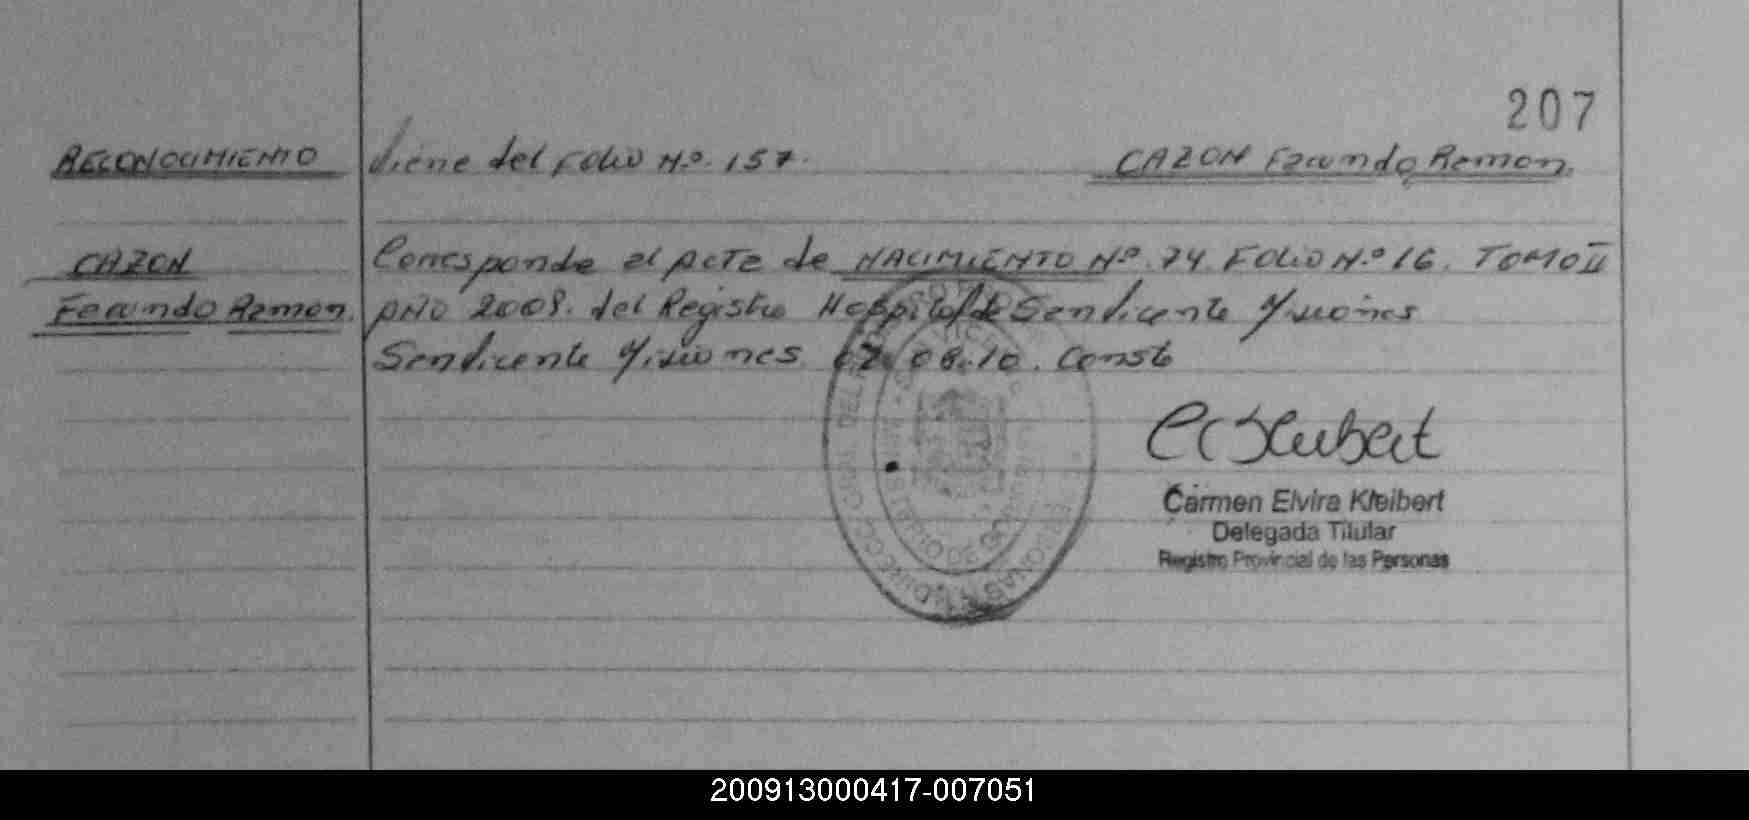 207
RECONOCIMIENTO Viene del Folio N.º 157. CAZON Facundo Ramon.
CAZON Corresponde al Acta de NACIMIENTO Nº 74 FOLIO N.º 16. TOMO II
Facundo Ramon. AÑO 2008. del Registro Hospital de San Vicente Misiones
San Vicente Misiones 08.10. Conste
Carmen Elvira Kleibert
Delegada Titular
Registro Provincial de las Personas
200913000417-007051